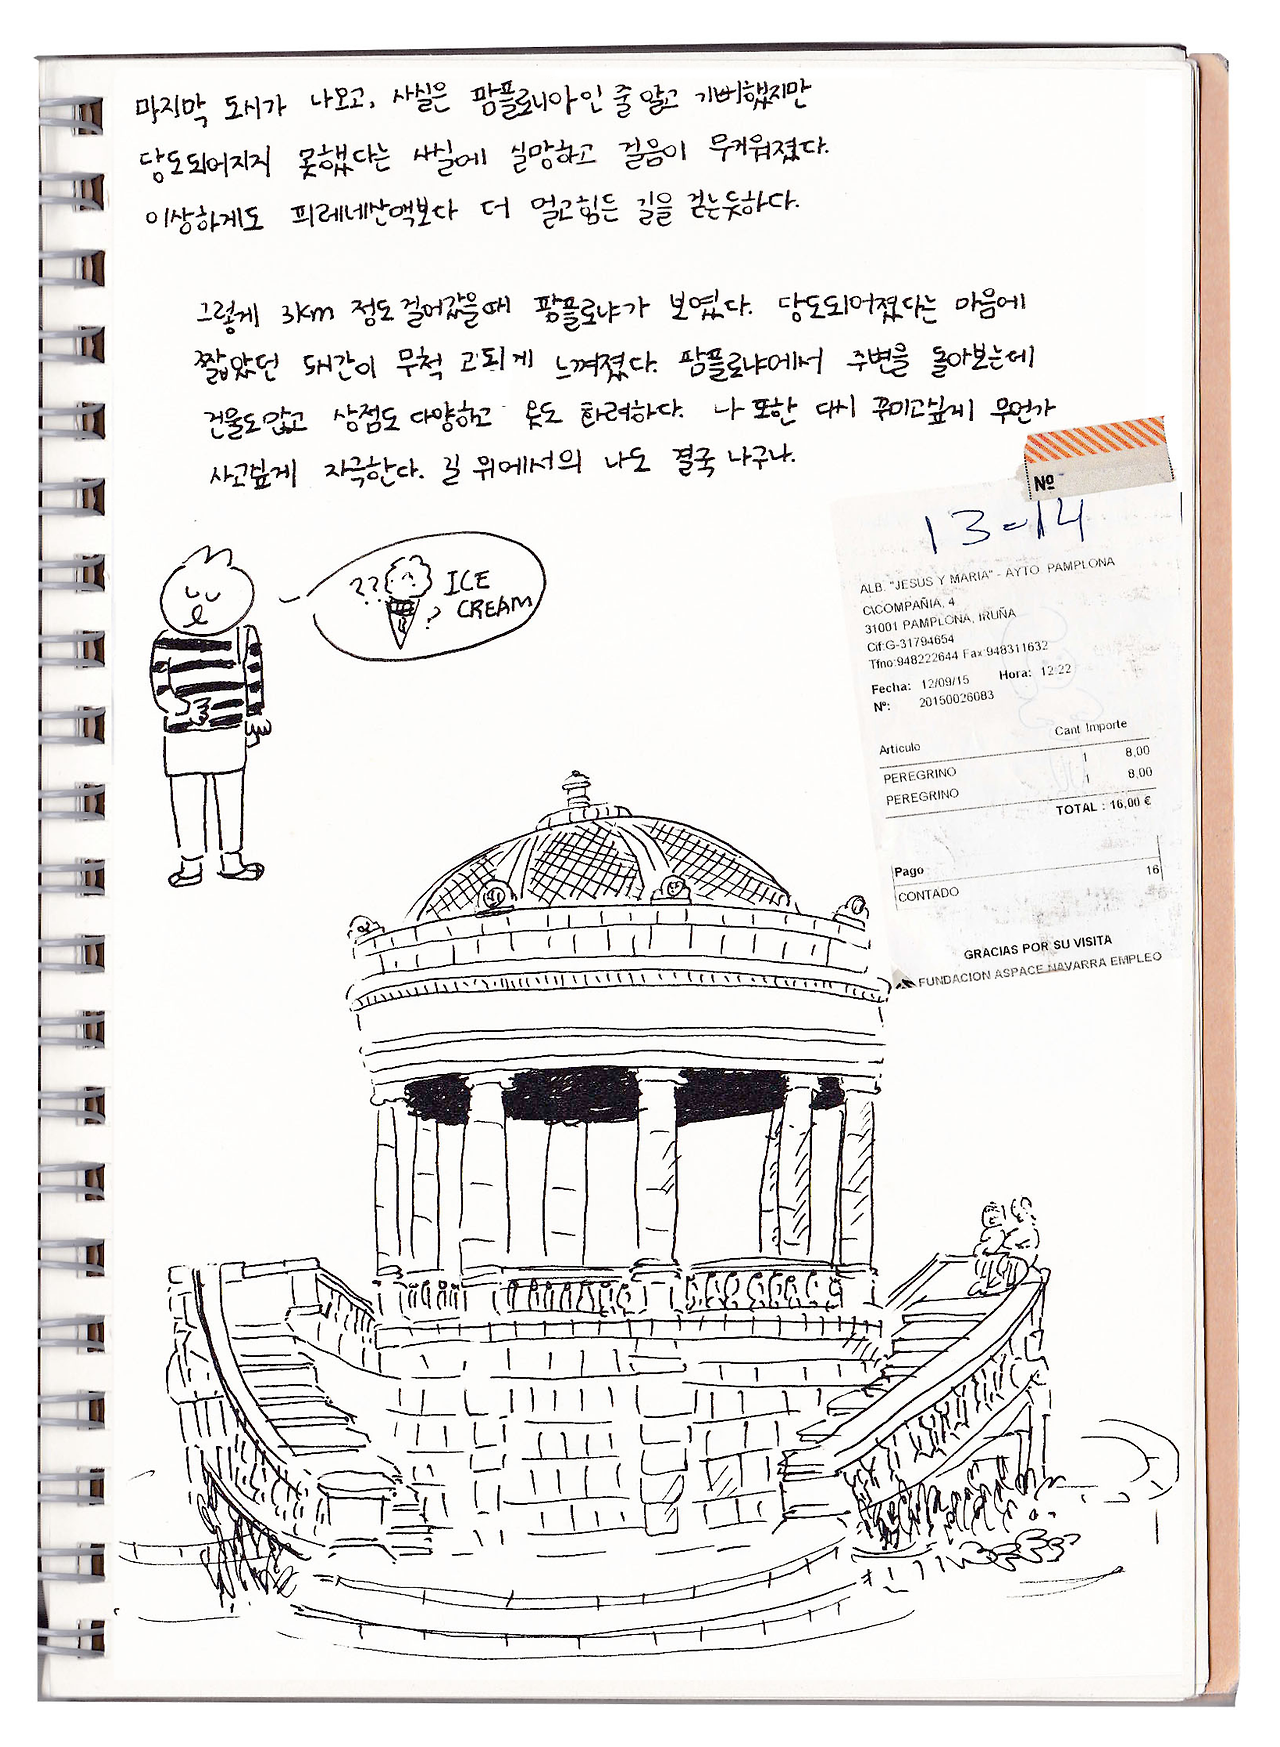 마지막 도시가 나오고, 사실은 팜플로니아인 줄 알고 기뻐했지만
당도되어지지 못했다는 사실에 실망하고 걸음이 무거워졌다.
이상하게도 피레네산맥보다 더 멀고힘든 길을 걷는듯하다.
그렇게 3km 정도 걸어갔을때 팜플로냐가 보였다. 당도되어졌다는 마음에
짧았던 5시간이 무척 고되게 느껴졌다. 팜플로냐에서 주변을 돌아보는데
건물도많고 상점도 다양하고 옷도 화려하다. 나 또한 다시 꾸미고싶게 무언가
사고싶게 자극한다. 길 위에서의 나도 결국 나구나.
Nº
13-14
?? ICE
? CREAM
ALB. "JESUS Y MARIA" - AYTO PAMPLONA
C\COMPAÑIA, 4
31001 PAMPLONA, IRUÑA
Cif:G-31794654
Tfno:948222644 Fax:948311632
Fecha: 12/09/15 Hora: 12:22
Nº: 20150026083
Artículo Cant Importe
PEREGRINO 1 8,00
PEREGRINO 1 8,00
TOTAL : 16,00 €
Pago
CONTADO 16
GRACIAS POR SU VISITA
FUNDACION ASPACE NAVARRA EMPLEO